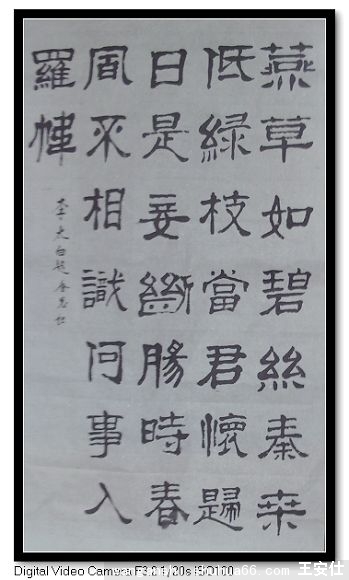 燕草如碧絲秦桒
低綠枝當君懷歸
日是妾斷腸時春
風不相識何事入
羅幃
李太白
Digital Video Camera F3.2 1/20s ISO100
王安仕